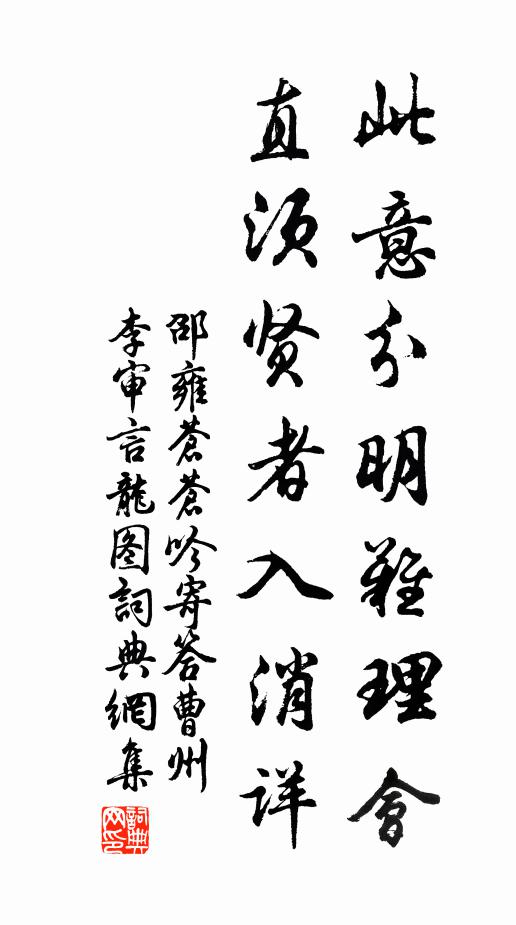 此意分明難理會
直須贤者入消詳
邵雍蒼蒼吟寄答曹州
李审言龍图詞典網集
詞典网印